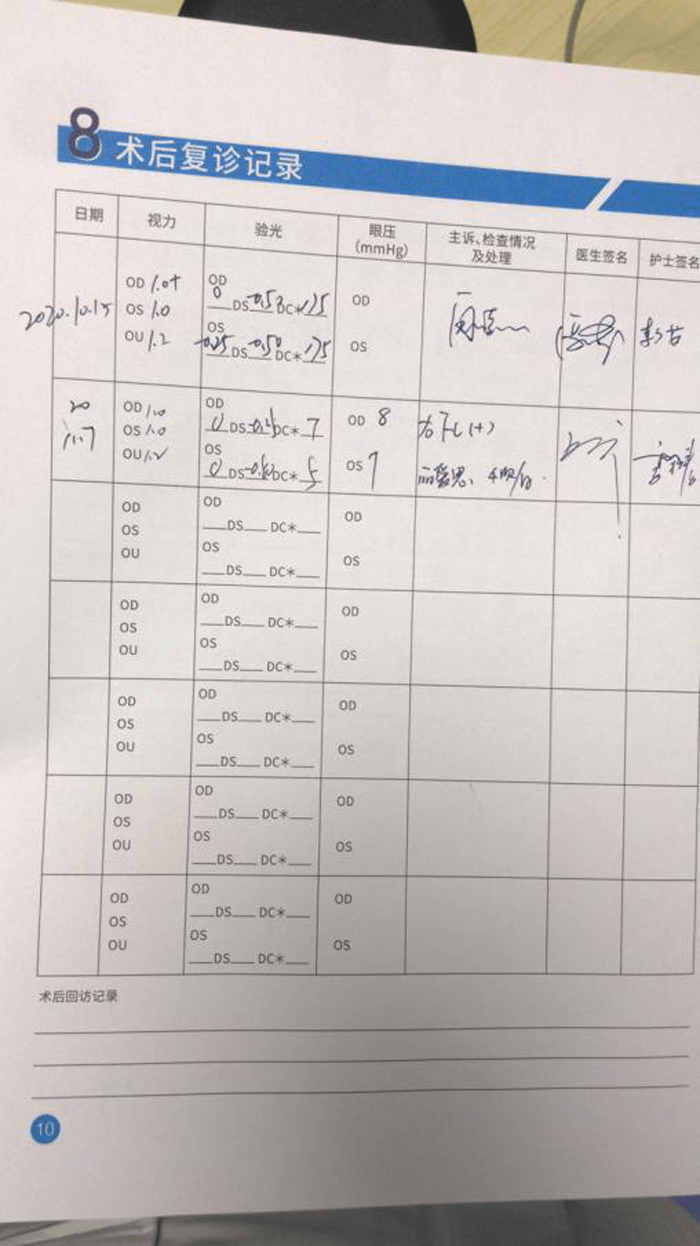 8 术后复诊记录
日期 视力 验光 眼压 (mmHg) 主诉、检查情况及处理 医生签名 护士签名
2020.10.15
OD 1.0+
OS 1.0
OU 1.2
OD
0 DS -0.5 DC* 175
OS
-0.25 DS -0.50 DC* 175
OD
OS
20
11.7
OD 1.0
OS 1.0
OU 1.2
OD
0 DS DC* 7
OS
0 DS DC* 5
OD 8
OS 7
(+)
OD
OS
OU
OD
__DS__ DC*__
OS
__DS__ DC*__
OD
OS
OD
OS
OU
OD
__DS__ DC*__
OS
__DS__ DC*__
OD
OS
OD
OS
OU
OD
__DS__ DC*__
OS
__DS__ DC*__
OD
OS
OD
OS
OU
OD
__DS__ DC*__
OS
__DS__ DC*__
OD
OS
OD
OS
OU
OD
__DS__ DC*__
OS
__DS__ DC*__
OD
OS
术后回访记录
10